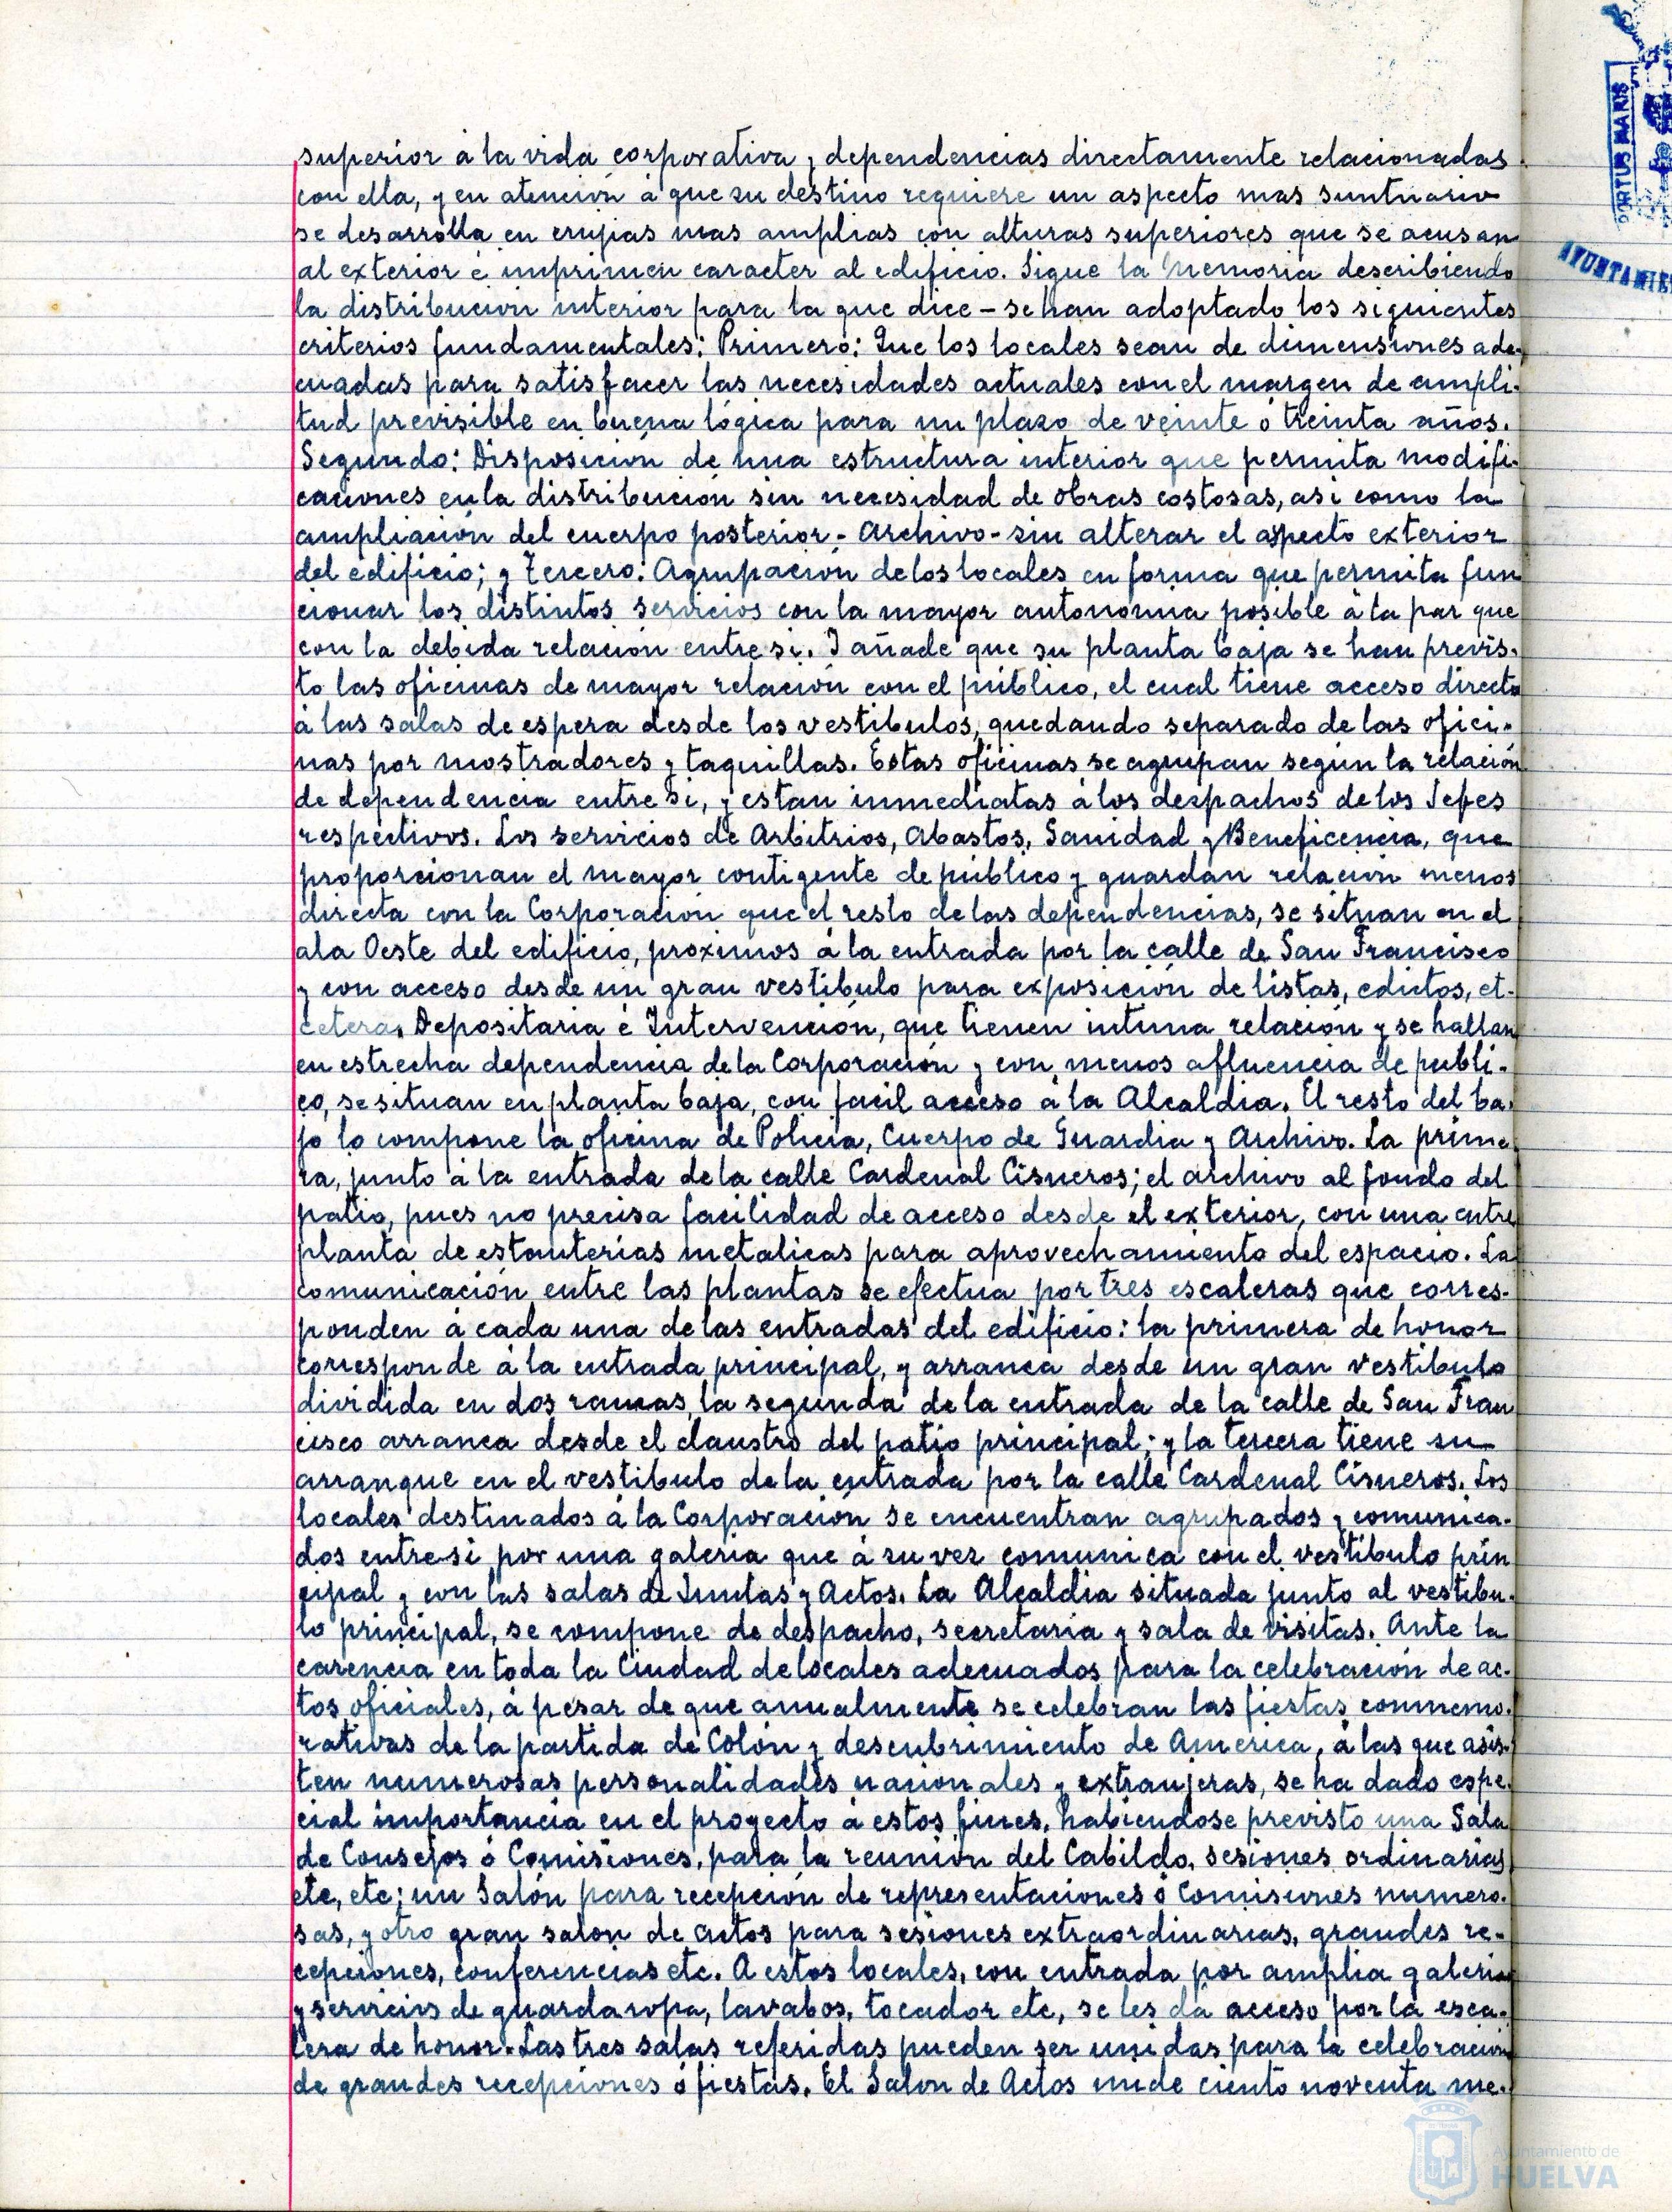 superior á la vida corporativa y dependencias directamente relacionadas
con ella, y en atención á que su destino requiere un aspecto mas suntuario
se desarrolla en crujias mas amplias con alturas superiores que se acusan
al exterior é imprimen caracter al edificio. Sigue la Memoria describiendo
la distribución interior para la que dice - se han adoptado los siguientes
criterios fundamentales: Primero: Que los locales sean de dimensiones ade-
cuadas para satisfacer las necesidades actuales con el margen de ampli-
tud previsible en buena lógica para un plazo de veinte ó treinta años.
Segundo: Disposición de una estructura interior que permita modifi-
caciones en la distribución sin necesidad de obras costosas, asi como la
ampliación del cuerpo posterior - Archivo - sin alterar el aspecto exterior
del edificio; y Tercero: Agrupación de los locales en forma que permita fun
cionar los distintos servicios con la mayor autonomia posible á la par que
con la debida relación entre si. Y añade que su planta baja se han previs-
to las oficinas de mayor relación con el público, el cual tiene acceso directo
á las salas de espera desde los vestibulos, quedando separado de las ofici-
nas por mostradores y taquillas. Estas oficinas se agrupan según la relación
de dependencia entre si, y estan inmediatas á los despachos de los Jefes
respectivos. Los servicios de Arbitrios, Abastos, Sanidad y Beneficencia, que
proporcionan el mayor contigente de público y guardan relación menos
directa con la Corporación que el resto de las dependencias, se situan en el
ala Oeste del edificio, proximos á la entrada por la calle de San Francisco
y con acceso desde un gran vestibulo para exposición de listas, edictos, et-
cetera. Depositaria é Intervención, que tienen intima relación y se hallan
en estrecha dependencia de la Corporación y con menos afluencia de publi-
co, se situan en planta baja, con facil acceso á la Alcaldia. El resto del ba-
jo lo compone la oficina de Policia, Cuerpo de Guardia y Archivo. La prime-
ra, junto á la entrada de la calle Cardenal Cisneros; el archivo al fondo del
patio, pues no precisa facilidad de acceso desde el exterior, con una entre
planta de estanterias metalicas para aprovechamiento del espacio. La
comunicación entre las plantas se efectua por tres escaleras que corres-
ponden á cada una de las entradas del edificio: la primera de honor
corresponde á la entrada principal, y arranca desde un gran vestibulo
dividida en dos ramas, la segunda de la entrada de la calle de San Fran
cisco arranca desde el claustro del patio principal; y la tercera tiene su
arranque en el vestibulo de la entrada por la calle Cardenal Cisneros. Los
locales destinados á la Corporación se encuentran agrupados y comunica-
dos entre si por una galeria que á su vez comunica con el vestibulo prin
cipal y con las salas de Juntas y Actos. La Alcaldia situada junto al vestibu-
lo principal, se compone de despacho, secretaria y sala de visitas. Ante la
carencia en toda la Ciudad de locales adecuados para la celebración de ac-
tos oficiales, á pesar de que anualmente se celebran las fiestas conmemo-
rativas de la partida de Colón y descubrimiento de America, á las que asis-
ten numerosas personalidades nacionales y extranjeras, se ha dado espe-
cial importancia en el proyecto á estos fines, habiendose previsto una Sala
de Consejos ó Comisiones, para la reunión del Cabildo, sesiones ordinarias,
etc, etc; un Salón para recepción de representaciones ó Comisiones numero-
sas, y otro gran salon de actos para sesiones extraordinarias, grandes re-
cepciones, conferencias etc. A estos locales, con entrada por amplia galeria
y servicios de guardaropa, lavabos, tocador etc, se les dá acceso por la esca-
lera de honor. Las tres salas referidas pueden ser unidas para la celebración
de grandes recepciones ó fiestas. El Salon de Actos mide ciento noventa me-
PORTUS MARIS
AYUNTAMIE
Ayuntamiento de
HUELVA